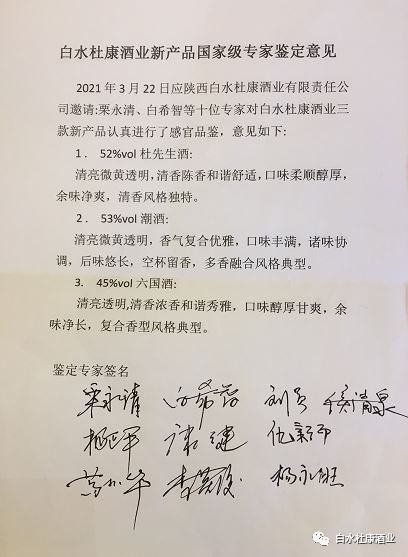 白水杜康酒业新产品国家级专家鉴定意见
2021年3月22日应陕西白水杜康酒业有限责任公
司邀请:栗永清、白希智等十位专家对白水杜康酒业三
款新产品认真进行了感官品鉴，意见如下:
1． 52%vol 杜先生酒:
清亮微黄透明，清香陈香和谐舒适，口味柔顺醇厚，
余味净爽，清香风格独特。
2．53%vol 潮酒:
清亮微黄透明，香气复合优雅，口味丰满，诸味协
调，后味悠长，空杯留香，多香融合风格典型。
3. 45%vol 六国酒:
清亮透明,清香浓香和谐秀雅，口味醇厚甘爽，余
味净长，复合香型风格典型。
鉴定专家签名
栗永清 白希智
康健
李
白水杜康酒业